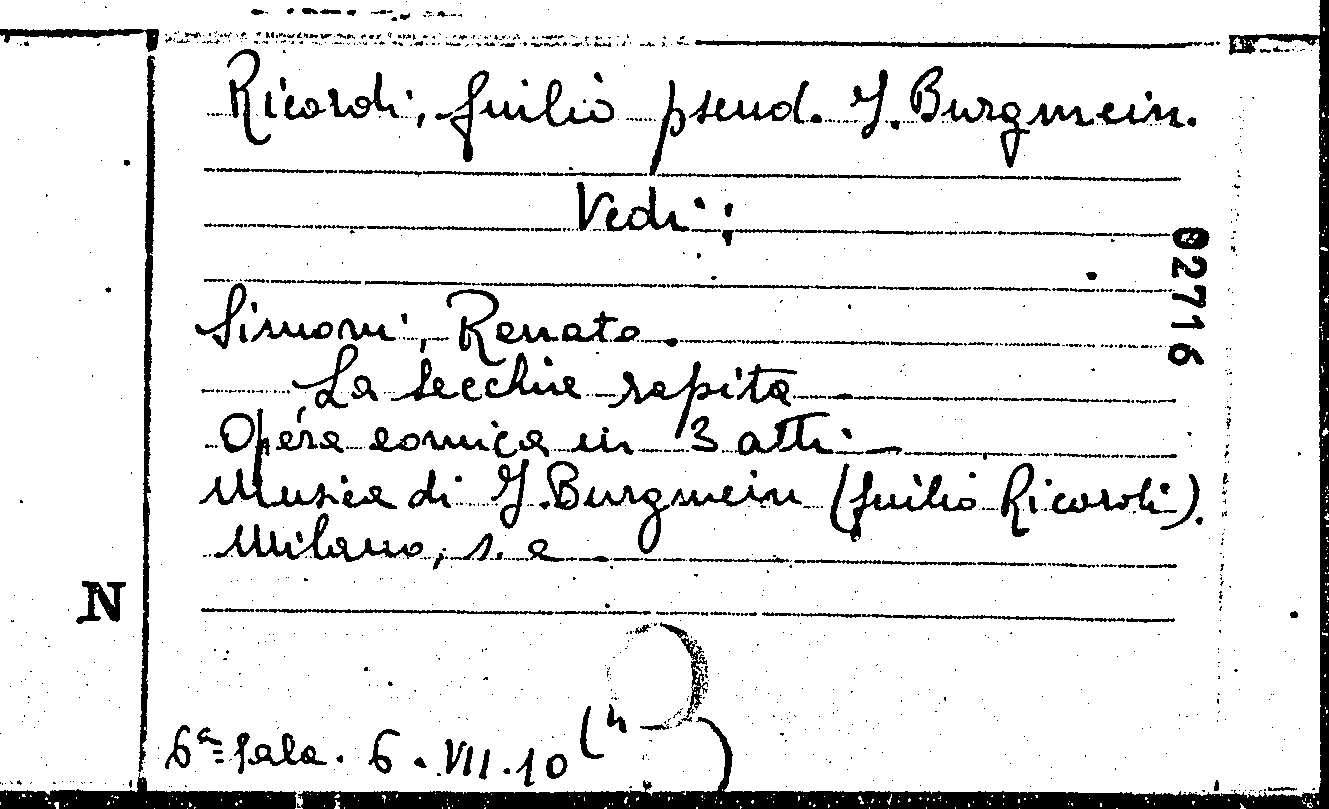 Ricordi, Giulio pseud. J. Burgmein.
Vedi:
02716
Simoni, Renato.
La secchia rapita
Opera comica in 3 atti
Musica di J. Burgmein (Giulio Ricordi).
Milano, s. a.
N
6ª Sala. 6. VII. 10